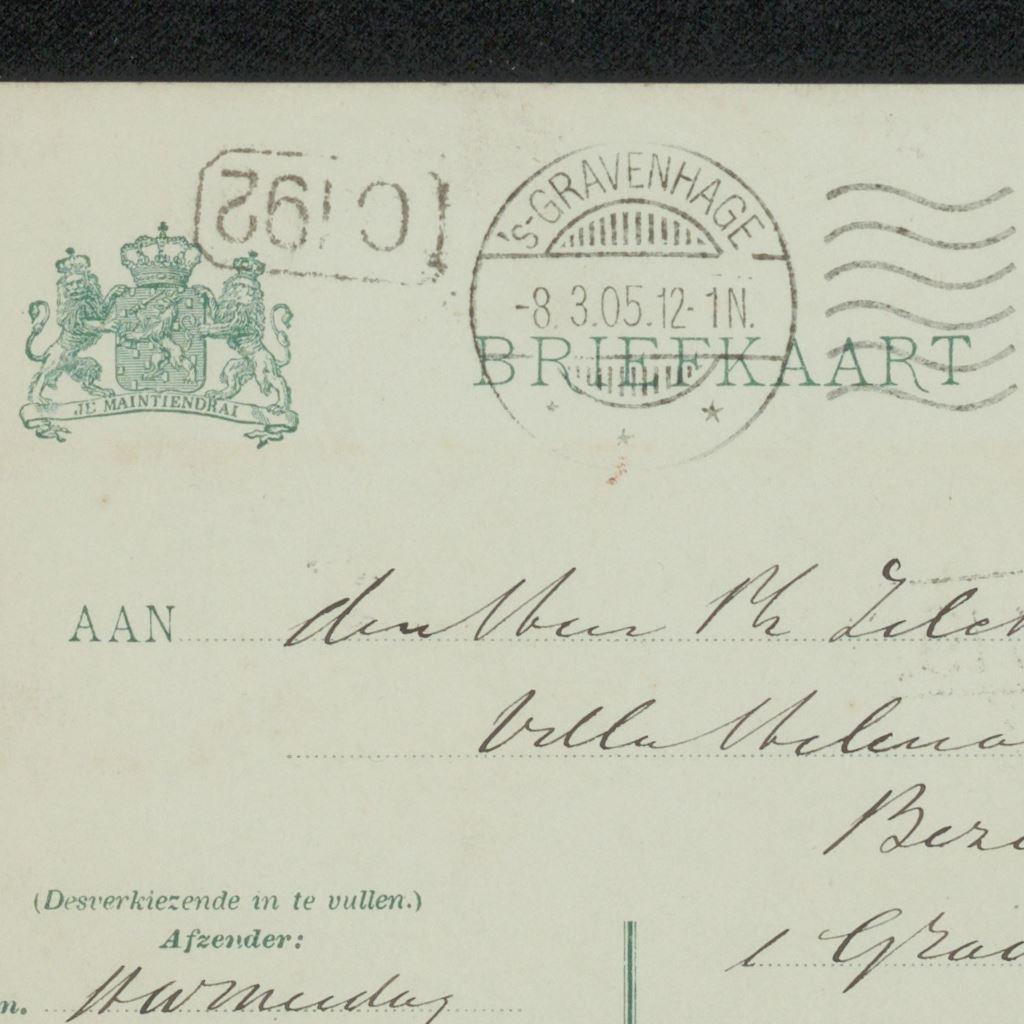 C 192
's-GRAVENHAGE
-8. 3.05.12-1N.
JE MAINTIENDRAI
BRIEFKAART
AAN den Heer Ph Zilcken
Villa Helena
Bezu
's Grav
(Desverkiezende in te vullen.)
Afzender:
n. HW Mesdag